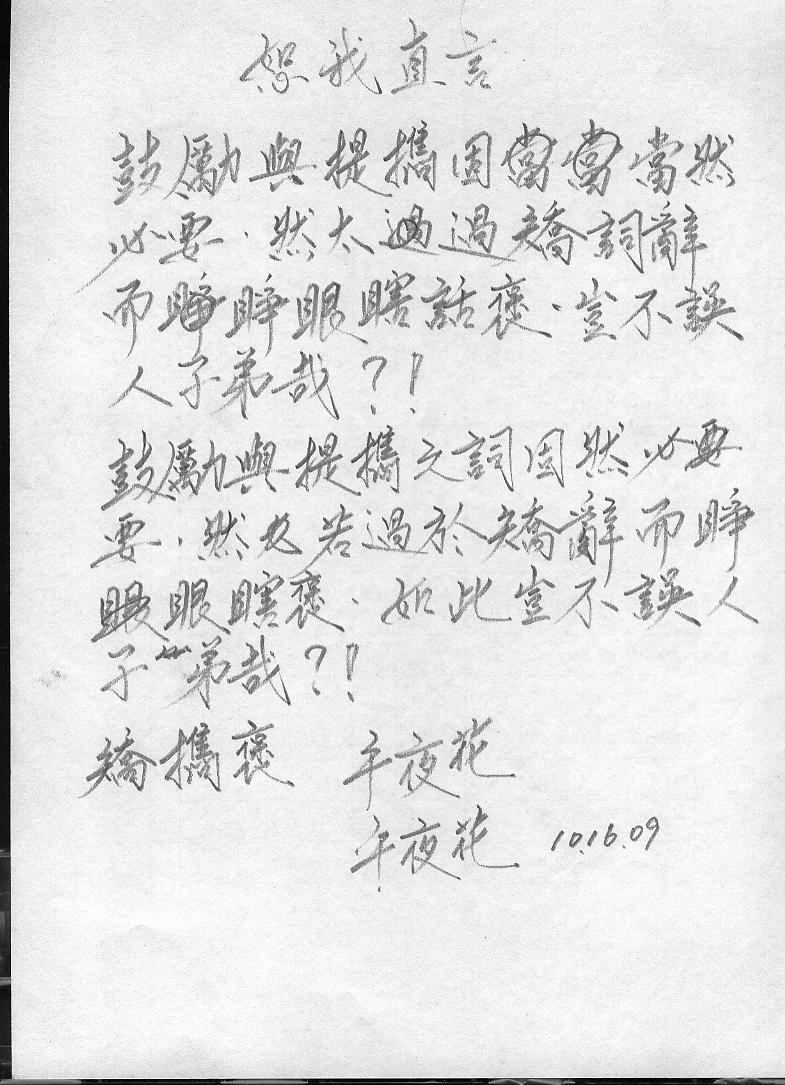 恕我直言
鼓勵與提攜固當當當然
必要．然太過過矯詞辭
而睜睜眼瞎話褒．豈不誤
人子弟哉？！
鼓勵與提攜之詞固然必要
要．然尤若過於矯辭而睜
眼眼瞎褒．如此豈不誤人
子弟哉？！
矯攜褒　午夜花
午夜花　10.16.09